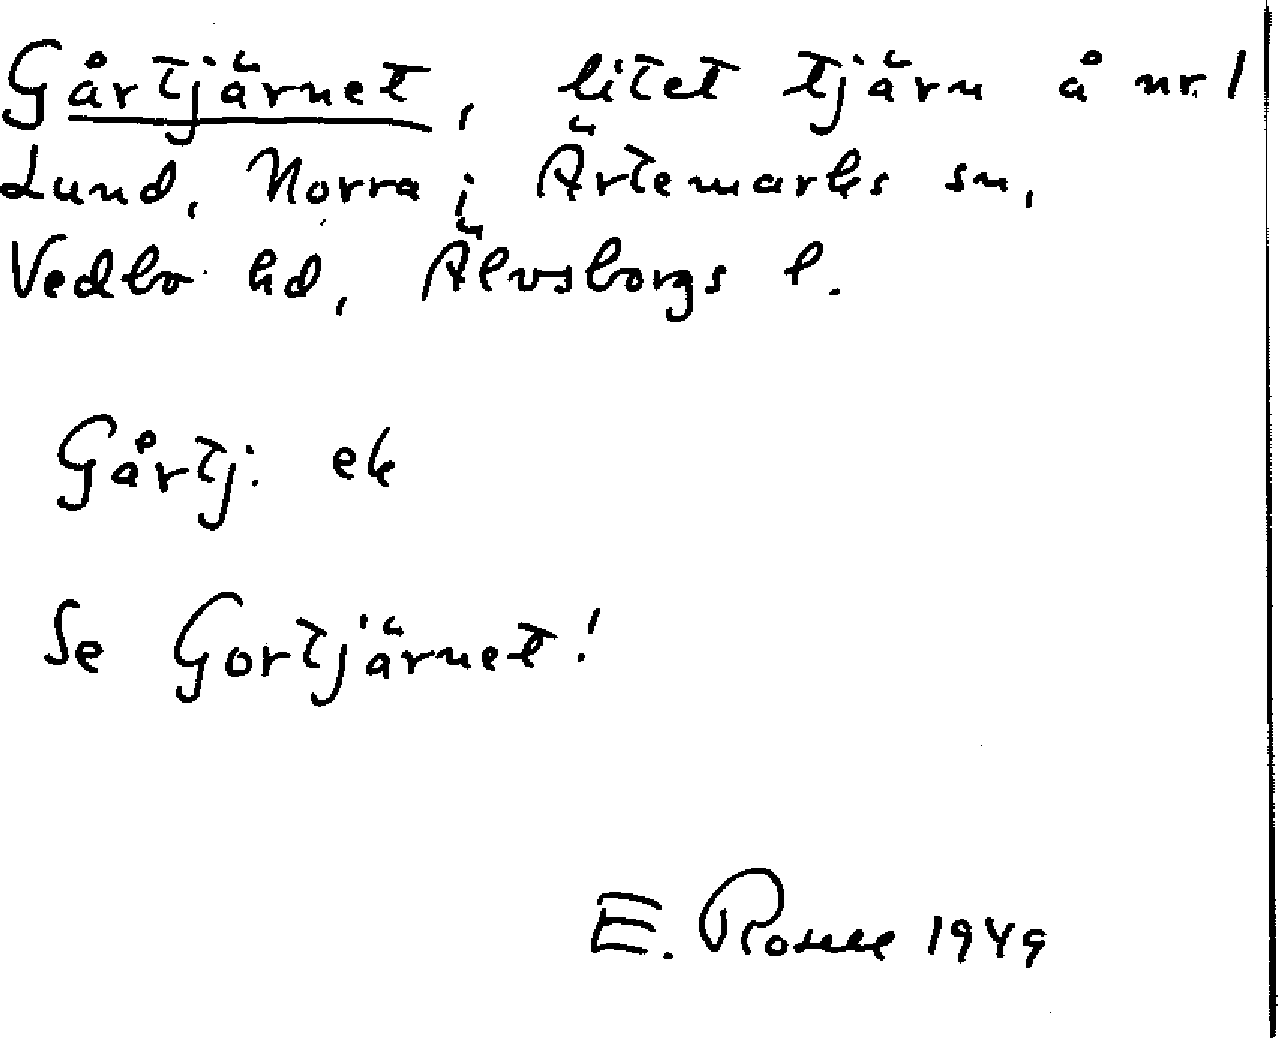 Gårtjärnet, litet tjärn å nr. 1
Lund, Norra i Ärtemarks sn,
Vedbo hd, Älvsborgs l.
Gårtj: ek
Se Gortjärnet!
E. 1949